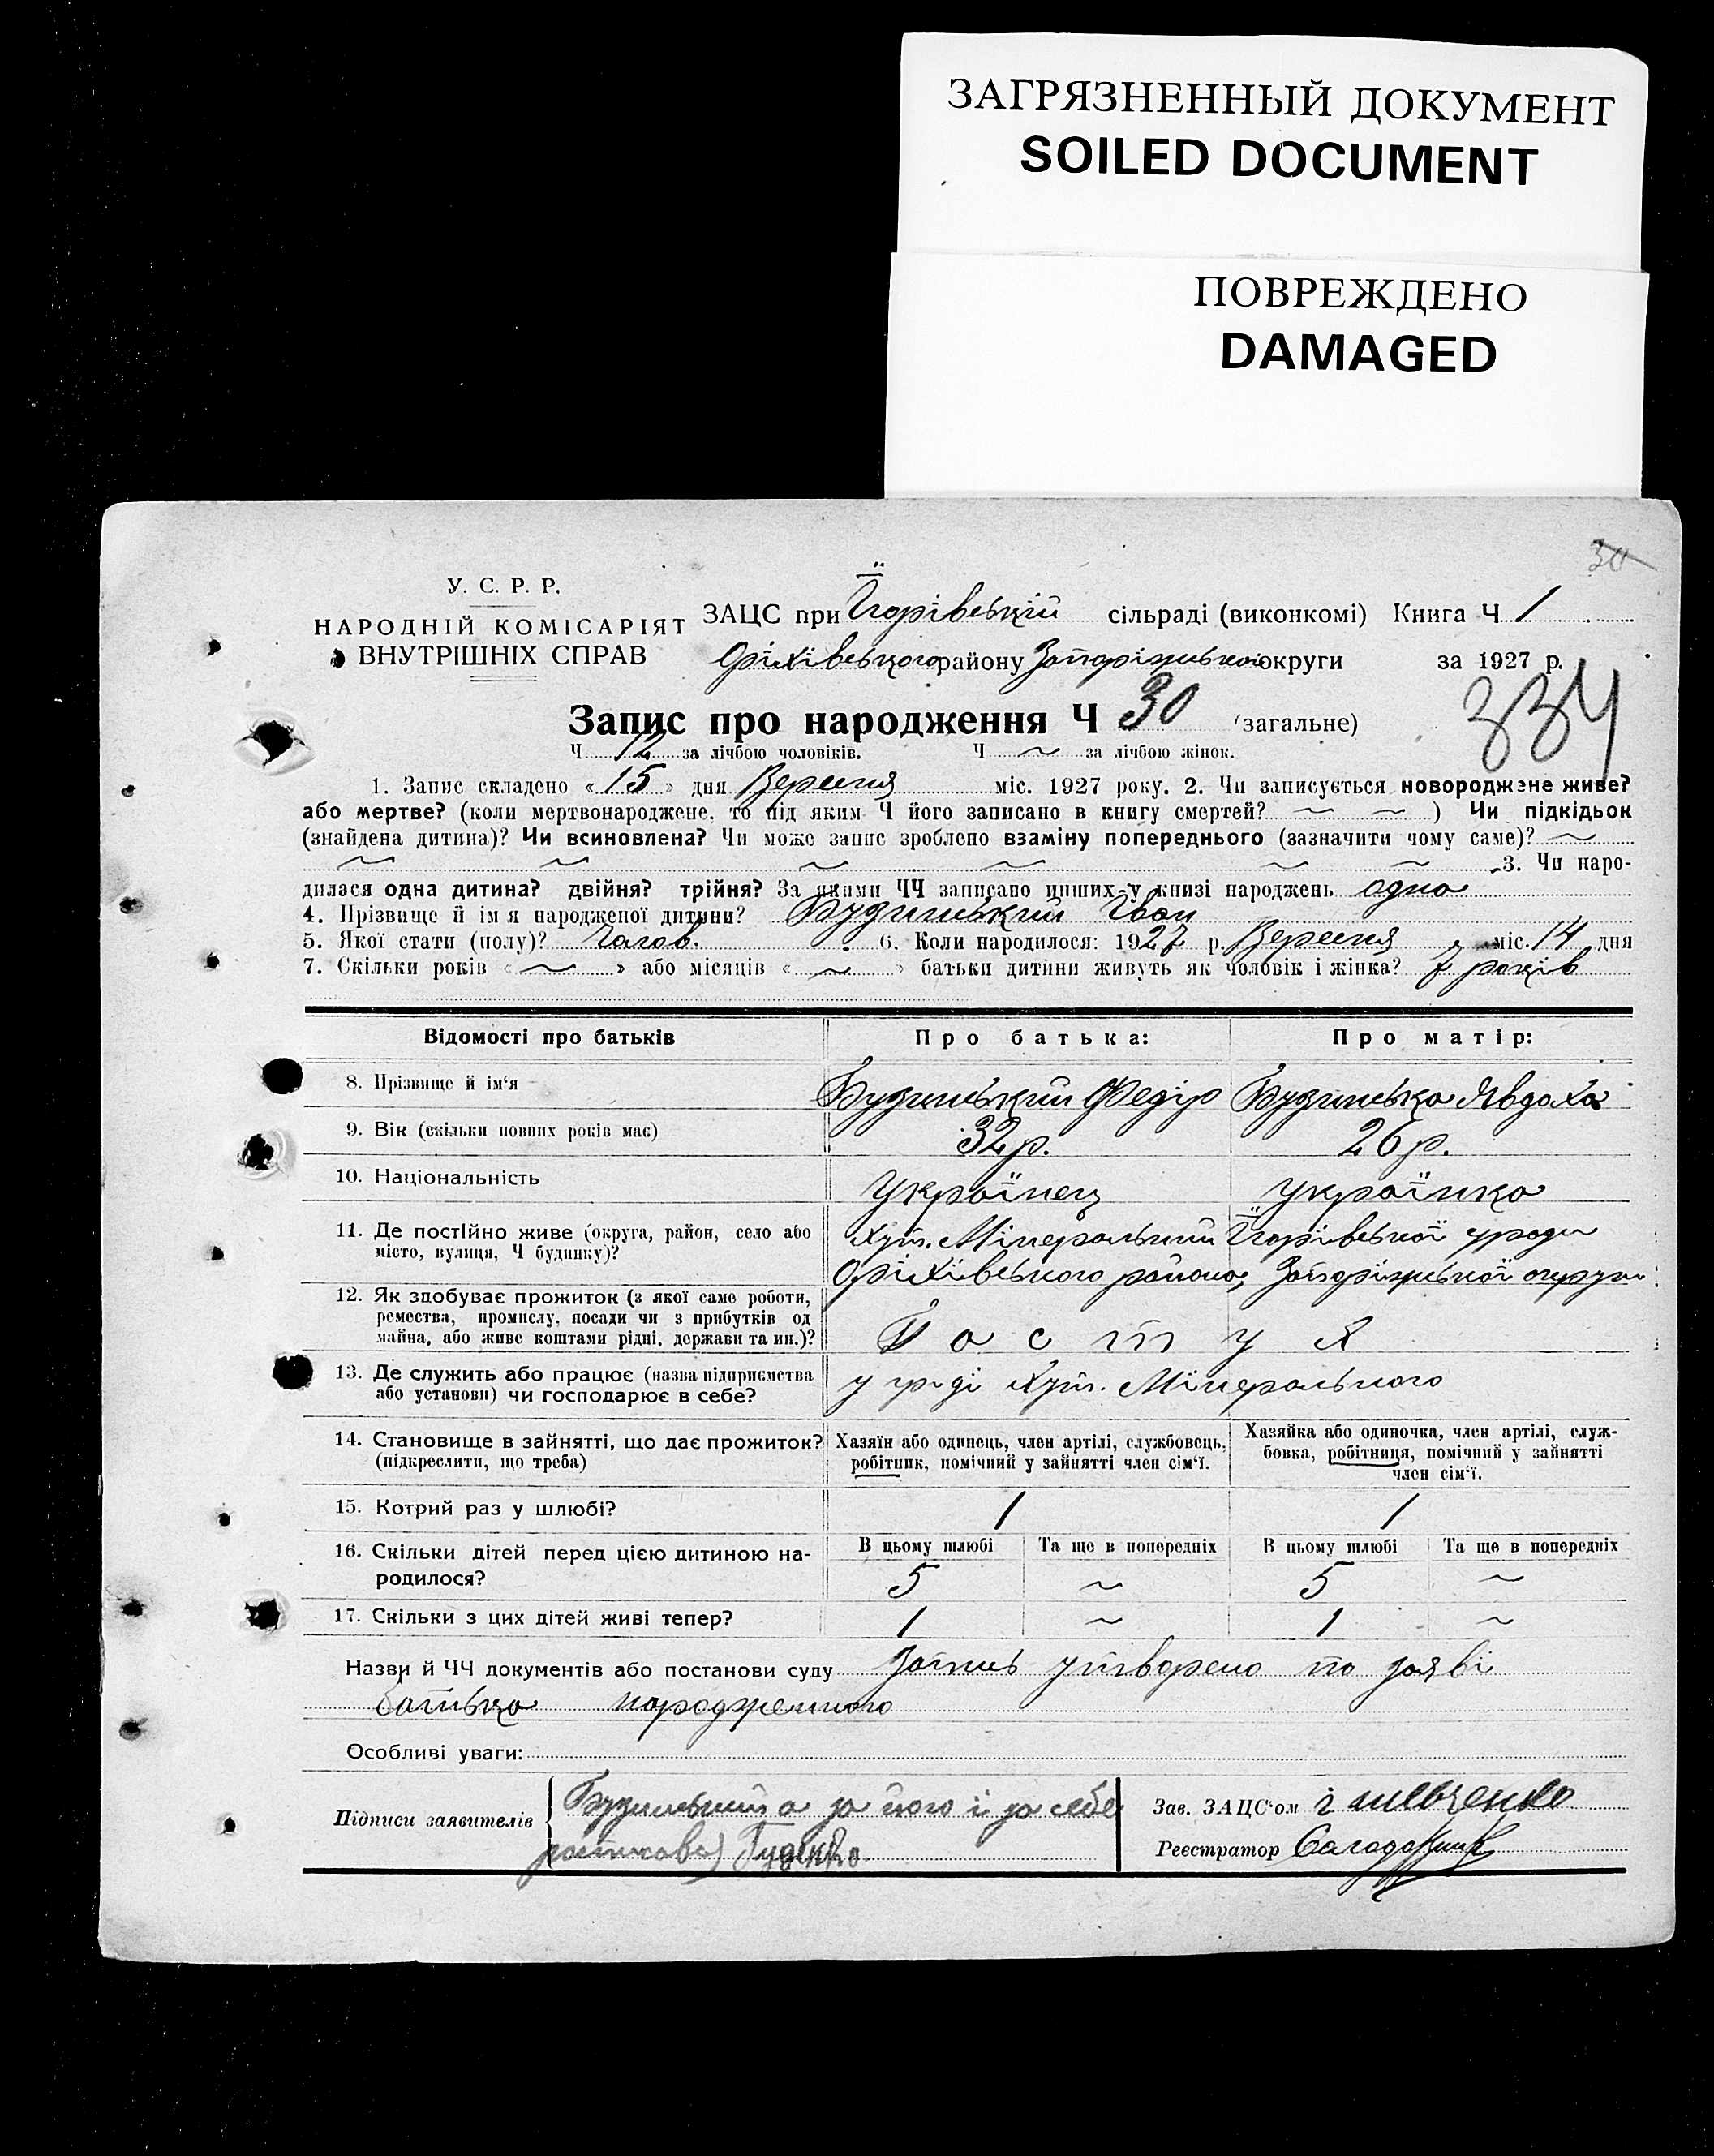 ЗАГРЯЗНЕННЫЙ ДОКУМЕНТ
SOILED DOCUMENT
ПОВРЕЖДЕНО
DAMAGED
30
У. С. Р. Р.
НАРОДНІЙ КОМІСАРІЯТ
ВНУТРІШНІХ СПРАВ
ЗАЦС при Їгорівській сільраді (виконкомі) Книга Ч 1
Оріхівського району Запоріжської округи за 1927 р.
334
Запис про народження Ч 30 (загальне)
Ч 12 за лічбою чоловіків. Ч ~ за лічбою жінок.
1. Запис складено «15» дня Вересня міс. 1927 року. 2. Чи записується новороджене живе?
або мертве? (коли мертвонароджене, то під яким Ч його записано в книгу смертей? ~ ~ ) Чи підкідьок
(знайдена дитина)? Чи всиновлена? Чи може запис зроблено взаміну попереднього (зазначити чому саме)? ~
~ ~ ~ ~ ~ ~ 3. Чи наро-
дилася одна дитина? двійня? трійня? За якими ЧЧ записано инших у книзі народжень одно
4. Прізвище й ім'я народженої дитини? Будинський Іван
5. Якої стати (полу)? Чолов. 6. Коли народилося: 1927 р. Вересня міс. 14 дня
7. Скільки років «~» або місяців «~» батьки дитини живуть як чоловік і жінка? 7 років
Відомості про батьків Про батька: Про матір:
8. Прізвище й ім'я Будинський Федір Будинська Явдоха
9. Вік (скільки повних років має) 32 р. 26 р.
10. Національність Українець Українка
11. Де постійно живе (округа, район, село або Хут. Мінеральний Їгорівської
місто, вулиця, Ч будинку)? Оріхівського району Запоріжської округи
12. Як здобуває прожиток (з якої саме роботи,
ремества, промислу, посади чи з прибутків од
майна, або живе коштами рідні, держави та ин.)? Пастух
13. Де служить або працює (назва підприємства
або установи) чи господарює в себе? у Хут. Мінерального
14. Становище в зайнятті, що дає прожиток? Хазяїн або одинець, член артілі, службовець, Хазяйка або одиночка, член артілі, служ-
(підкреслити, що треба) робітник, помічний у зайнятті член сім'ї. бовка, робітниця, помічний у зайнятті
член сім'ї.
15. Котрий раз у шлюбі? 1 1
16. Скільки дітей перед цією дитиною на- В цьому шлюбі Та ще в попередніх В цьому шлюбі Та ще в попередніх
родилося? 5 ~ 5 ~
17. Скільки з цих дітей живі тепер? 1 ~ 1 ~
Назви й ЧЧ документів або постанови суду Запись утворено по заяві
батька народженного
Особливі уваги:
Підписи заявителів Будинський а за його й за себе
Зав. ЗАЦС'ом
Реєстратор